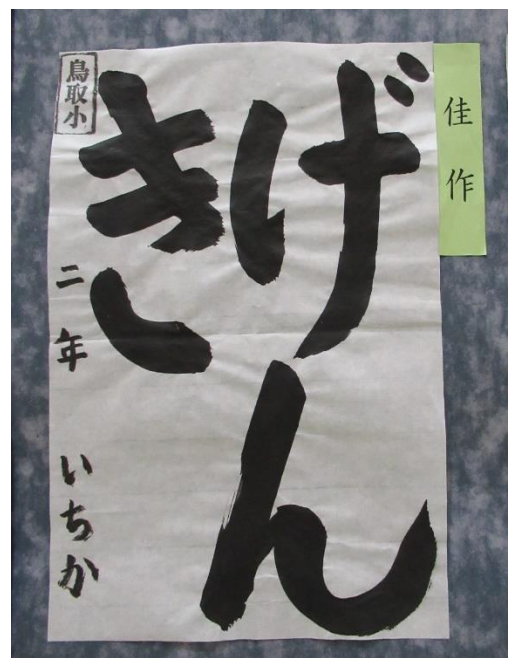 佳作
げん
き
鳥取小
二年 いちか